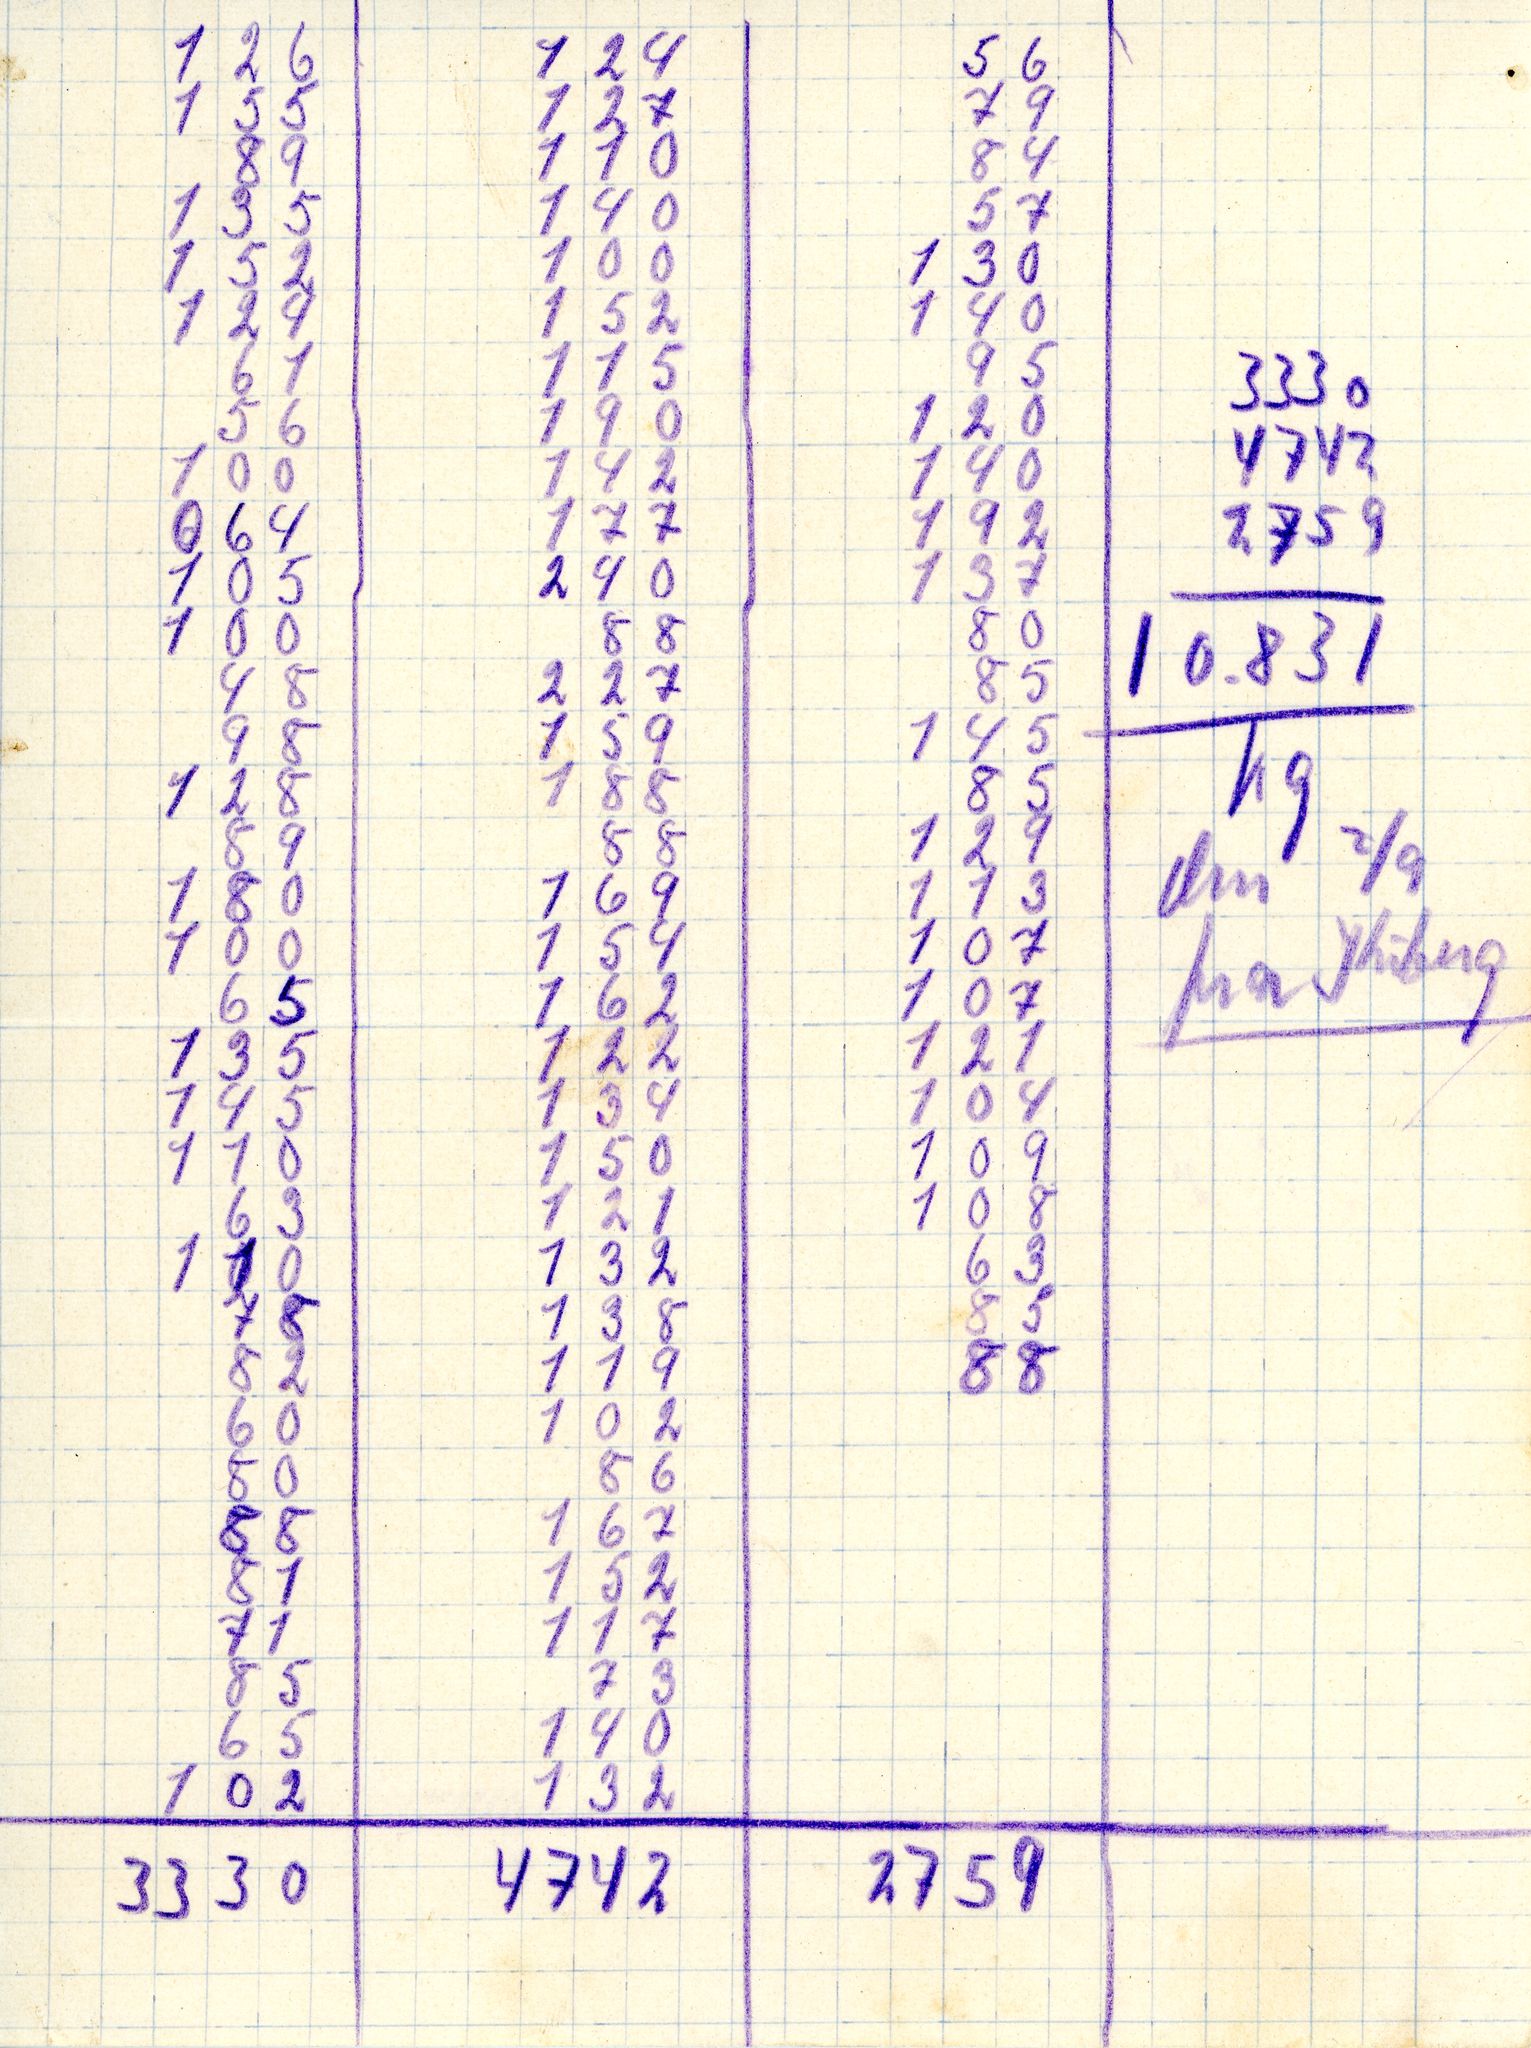 126
155
89
135
152
124
61
56
100
064
105
100
48
98
128
89
180
100
65
135
145
110
63
110
78
82
60
80
88
81
71
85
65
102
3330
124
127
110
140
100
152
115
190
142
177
240
88
227
159
188
88
169
154
162
122
134
150
121
132
138
119
102
86
167
152
117
73
140
132
4742
56
79
84
57
130
140
95
120
140
192
137
80
85
145
85
129
113
107
107
121
104
109
108
63
85
88
2759
3330
4742
2759
10.831
kg
2/9